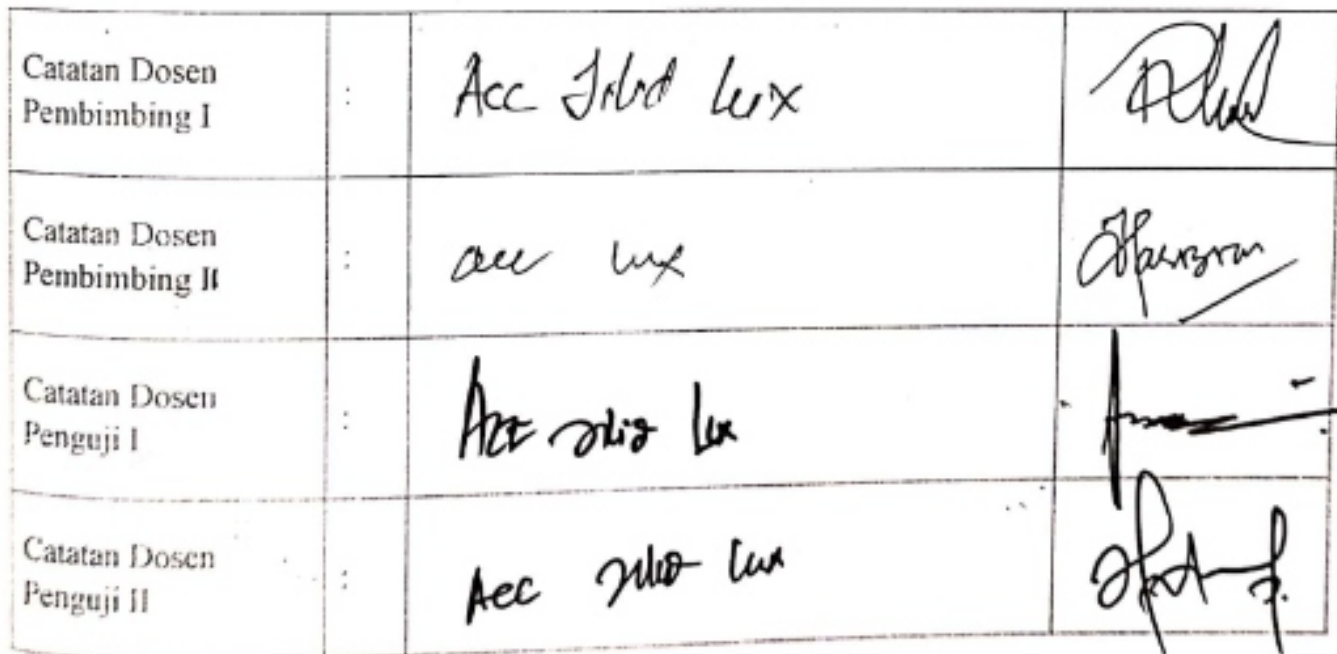 Catatan Dosen
Pembimbing I
: Acc Jilid Lux
Catatan Dosen
Pembimbing II
: acc lux
Catatan Dosen
Penguji I
: Acc Jilid Lux
Catatan Dosen
Penguji II
: Acc Jilid Lux